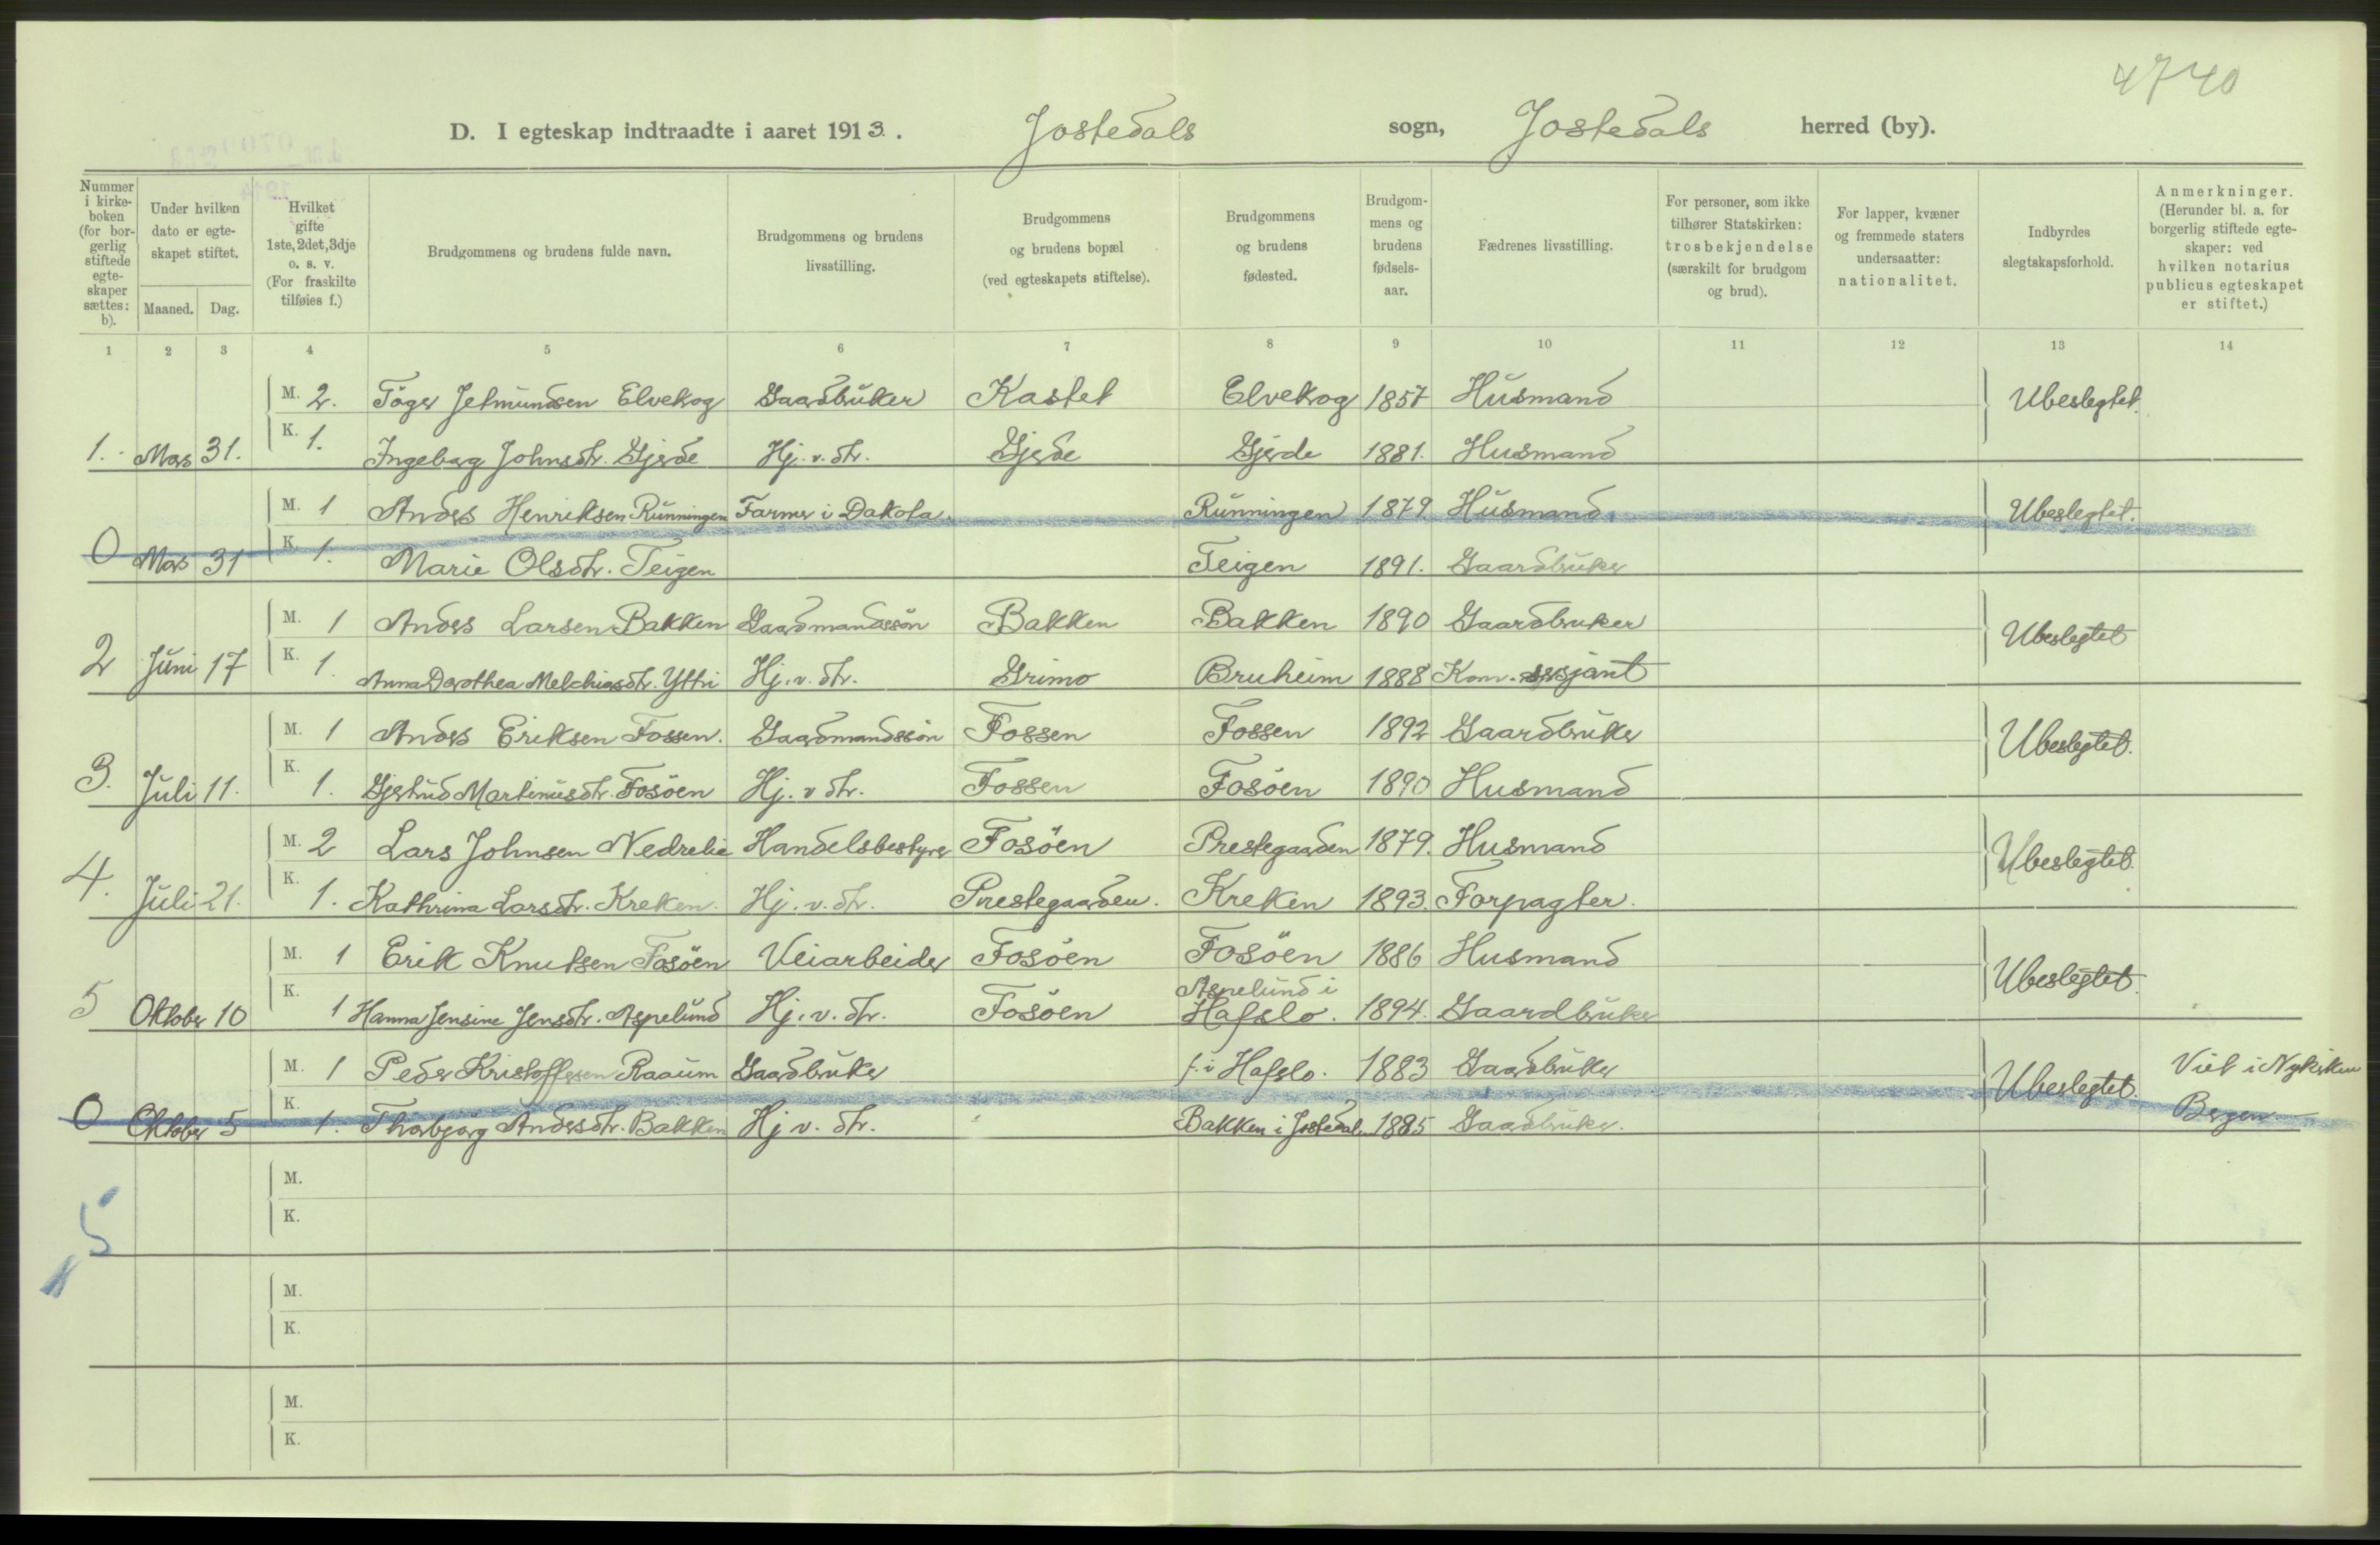 4740
D. I egteskap indtraadte i aaret 1913. Jostedals sogn, Jostedals herred (by).
Nummer i kirkeboken (for borgerlig stiftede egteskaper sættes: b).
Under hvilken dato er egteskapet stiftet.
Maaned. Dag.
Hvilket gifte 1ste, 2det, 3dje o. s. v. (For fraskilte tilføies f.)
Brudgommens og brudens fulde navn.
Brudgommens og brudens livsstilling.
Brudgommens og brudens bopæl (ved egteskapets stiftelse).
Brudgommens og brudens fødested.
Brudgommens og brudens fødselsaar.
Fædrenes livsstilling.
For personer, som ikke tilhører Statskirken: trosbekjendelse (særskilt for brudgom og brud).
For lapper, kvæner og fremmede staters undersaatter: nationalitet.
Indbyrdes slegtskapsforhold.
Anmerkninger. (Herunder bl. a. for borgerlig stiftede egteskaper: ved hvilken notarius publicus egteskapet er stiftet.)
1 2 3 4 5 6 7 8 9 10 11 12 13 14
M. 2. Töger Jetmundsen Elvekrog Gaardbruker Kastet Elvekrog 1857 Husmand Ubeslegtet.
1. Mars 31. K. 1. Ingeborg Johnsdtr. Gjerde Hj. v. dtr. Gjerde Gjerde 1881. Husmand
M. 1 Anders Henriksen Rünningen Farmer i Dakota. Rünningen 1879. Husmand. Ubeslegtet.
0 Mars 31 K. 1. Marie Olsdtr. Teigen Teigen 1891. Gaardbruker
M. 1 Anders Larsen Bakken Gaardmandssön Bakken Bakken 1890 Gaardbruker Ubeslegtet
2 Juni 17 K. 1. Anna Dorothea Melchiorsdtr. Yttri Hj. v. dtr. Grimo Bruheim 1888 Kom. sersjant
M. 1 Anders Eriksen Fossen. Gaardmandssön Fossen Fossen 1892 Gaardbruker Ubeslegtet.
3. Juli 11. K. 1. Gjertrud Martinusdtr. Fosöen Hj. v dtr. Fossen Fosöen 1890 Husmand
M. 2 Lars Johnsen Nedrelie Handelsbestyrer Fosöen Prestegaarden 1879. Husmand Ubeslegtet.
4. Juli 21. K. 1. Kathrina Larsdtr. Kreken. Hj. v. dtr. Prestegaarden. Kreken 1893. Forpagter.
M. 1 Erik Knutsen Fosöen Veiarbeider Fosöen Fosöen 1886 Husmand Ubeslegtet.
5 Oktober 10 K. 1 Hanna Jensine Jensdtr. Aspelund Hj. v. dtr. Fosöen Aspelund i Hafslo. 1894. Gaardbruker
M. 1 Peder Kristoffersen Raaum Gaardbruker f. i Hafslo. 1883 Gaardbruker Ubeslegtet. Viet i Nykirken
0 Oktober 5 K. 1. Thorbjörg Andersdtr. Bakken Hj v. dtr. Bakken i Jostedal 1885 Gaardbruker. Bergen
M.
K.
5
M.
K.
M.
K.